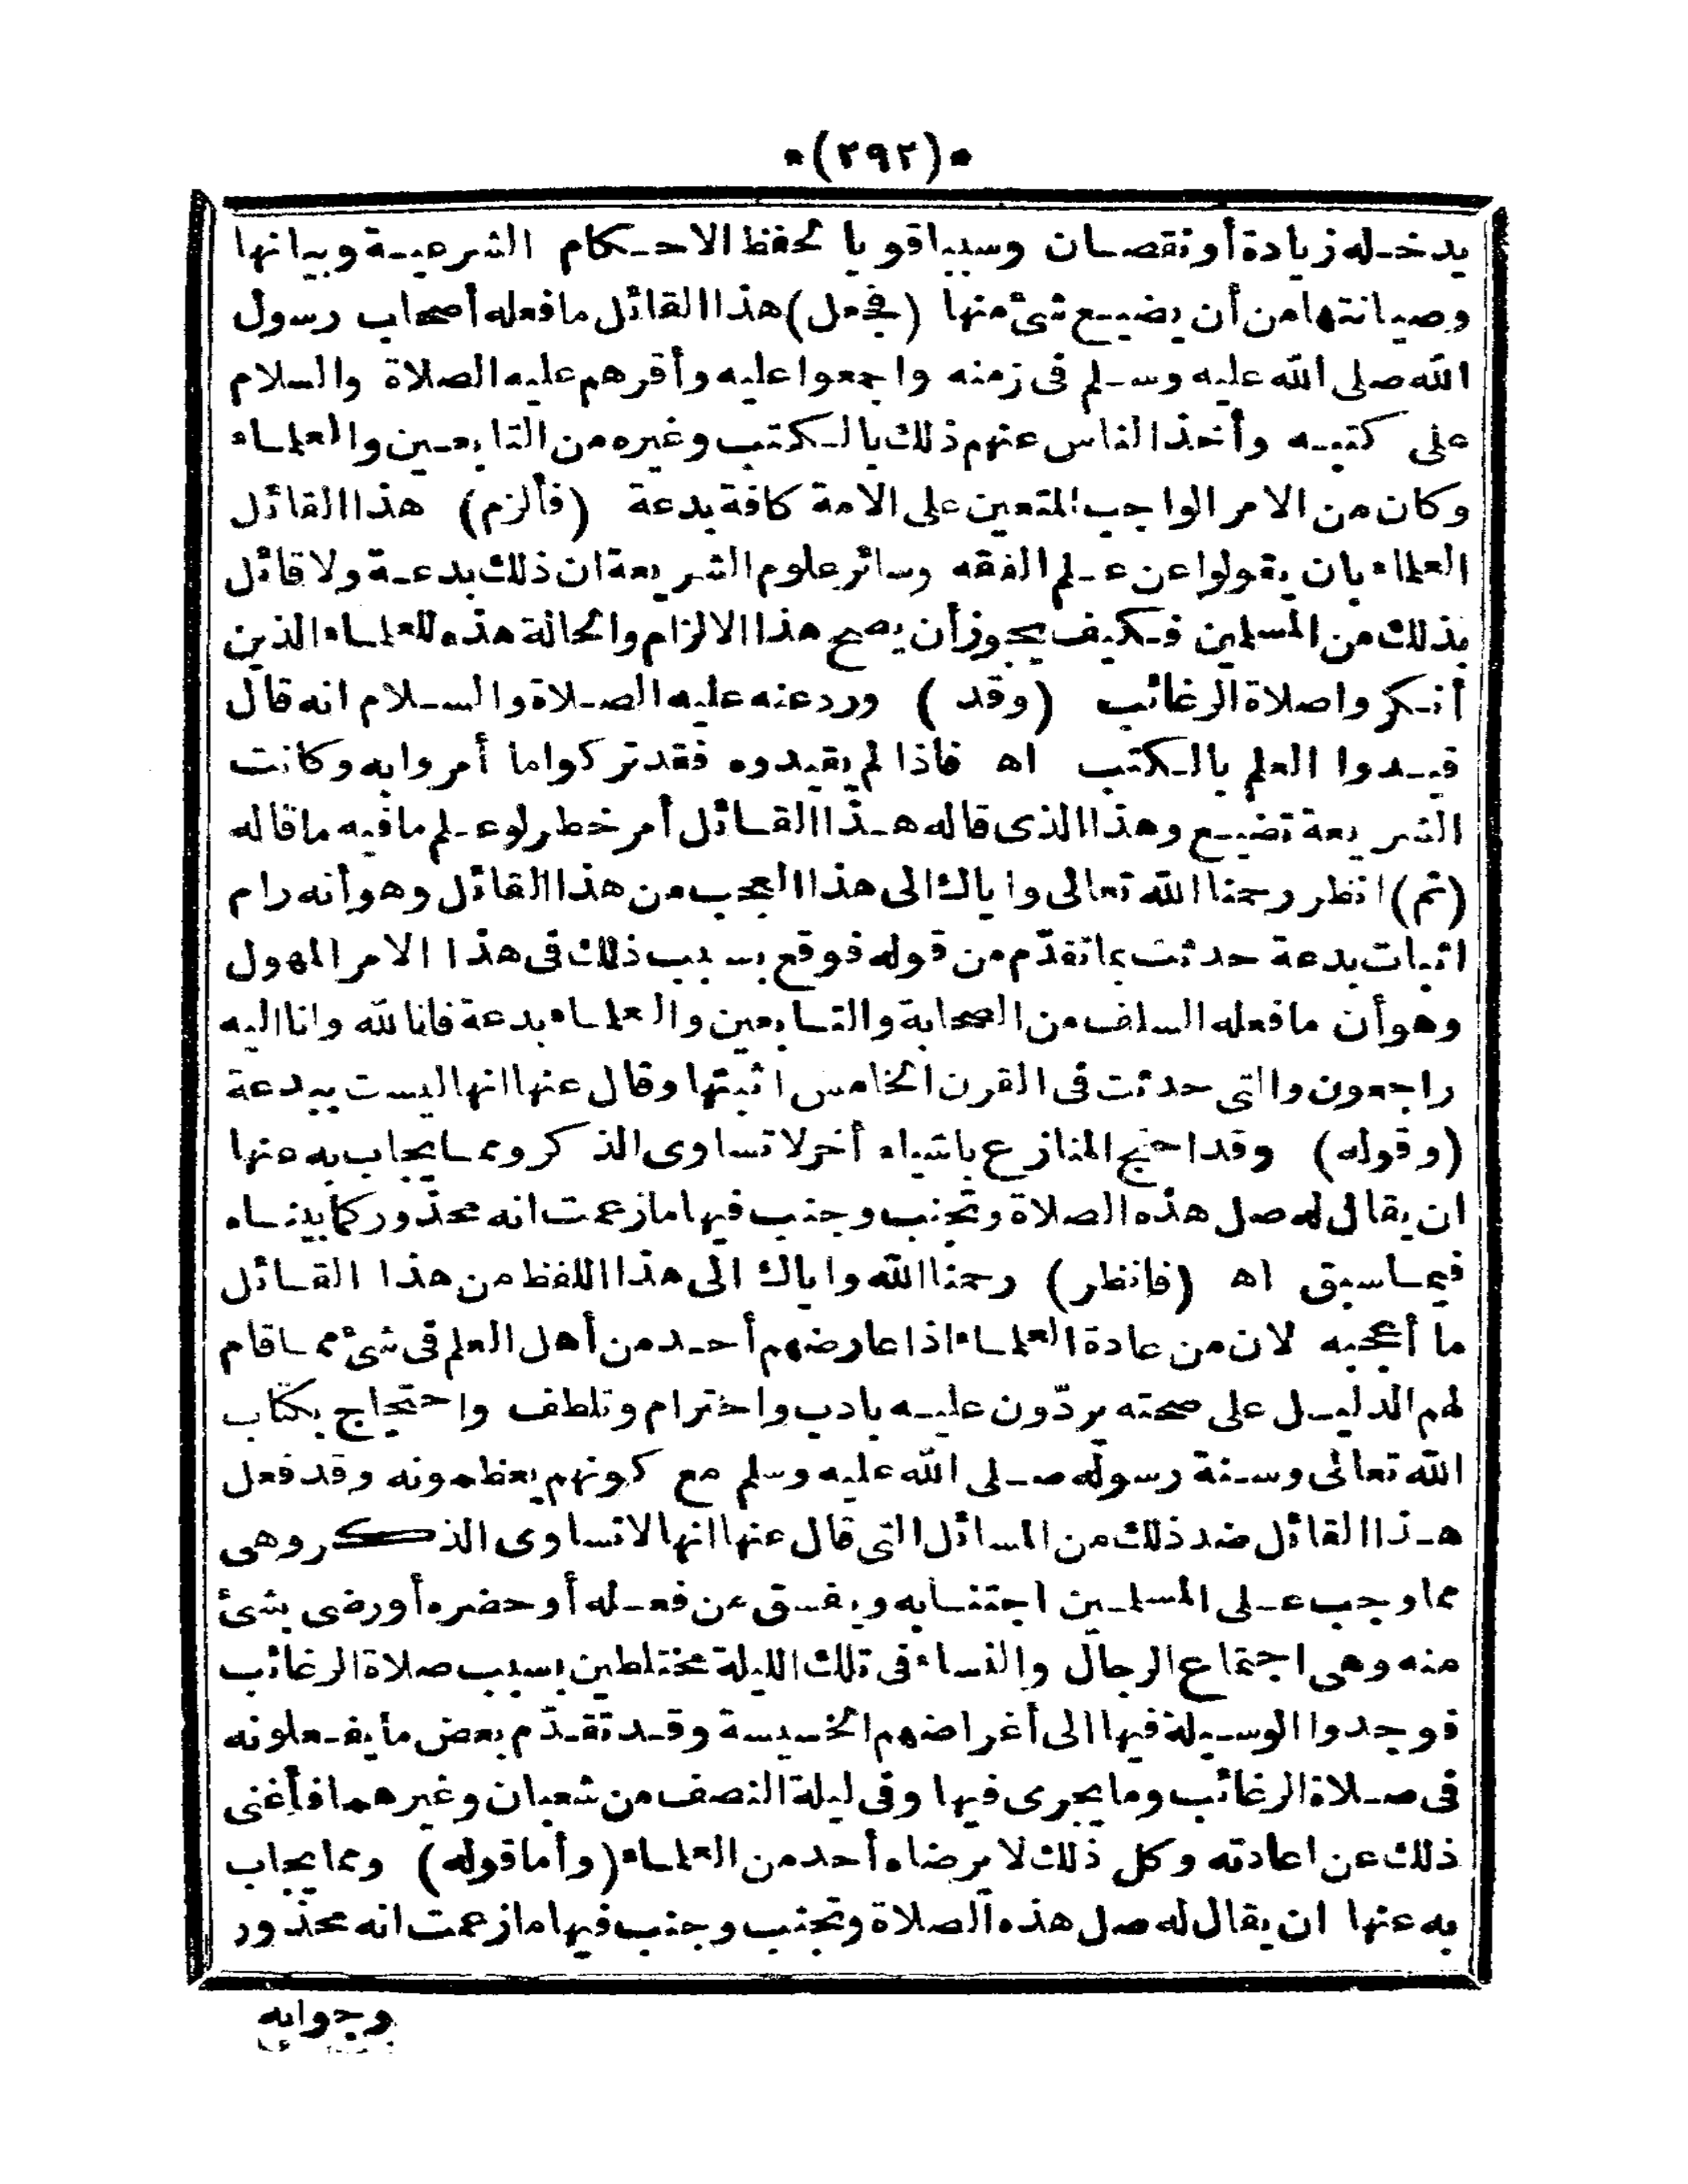 *(٢٩٢)*
يدخله زيادة أو نقصان وسببا قويا لحفظ الاحكام الشرعية وبيانها
وصيانتها من أن يضيع شئ منها (فجعل) هذا القائل ما فعله أصحاب رسول
الله صلى الله عليه وسلم فى زمنه واجمعوا عليه وأقرهم عليه الصلاة والسلام
على كتبه وأخذ الناس عنهم ذلك بالكتب وغيره من التابعين والعلماء
وكان من الامر الواجب المتعين على الامة كافة بدعة (فألزم) هذا القائل
العلماء بان يقولوا عن علم الفقه وسائر علوم الشريعة ان ذلك بدعة ولا قائل
بذلك من المسلمين فكيف يجوز أن يصح هذا الالزام والحالة هذه للعلماء الذين
أنكروا صلاة الرغائب (وقد) ورد عنه عليه الصلاة والسلام انه قال
قيدوا العلم بالكتب اه فاذا لم يقيدوه فقد تركوا ما أمروا به وكانت
الشريعة تضيع وهذا الذى قاله هذا القائل أمر خطر لو علم ما فيه ما قاله
(ثم) انظر رحمنا الله تعالى واياك الى هذا العجب من هذا القائل وهو أنه رام
اثبات بدعة حدثت بما تقدّم من قوله فوقع بسبب ذلك فى هذا الامر المهول
وهو أن ما فعله السلف من الصحابة والتابعين والعلماء بدعة فانا لله وانا اليه
راجعون والتى حدثت فى القرن الخامس اثبتها وقال عنها انها ليست ببدعة
(وقوله) وقد احتج المنازع باشياء أخر لا تساوى الذكر ومما يجاب به عنها
ان يقال له صل هذه الصلاة وتجنب وجنب فيها ما زعمت انه محذور كما بيناه
فيما سبق اه (فانظر) رحمنا الله واياك الى هذا اللفظ من هذا القائل
ما أعجبه لان من عادة العلماء اذا عارضهم أحد من أهل العلم فى شئ مما قام
لهم الدليل على صحته يردّون عليه بادب واحترام وتلطف واحتجاج بكتاب
الله تعالى وسنة رسوله صلى الله عليه وسلم مع كونهم يعظمونه وقد فعل
هذا القائل ضد ذلك من المسائل التى قال عنها انها لا تساوى الذكر وهى
مما وجب على المسلمين اجتنابه ويفسق من فعله أو حضره أو رضى بشئ
منه وهى اجتماع الرجال والنساء فى تلك الليلة مختلطين بسبب صلاة الرغائب
فوجدوا الوسيلة فيها الى أغراضهم الخسيسة وقد تقدّم بعض ما يفعلونه
فى صلاة الرغائب وما يجرى فيها وفى ليلة النصف من شعبان وغيرهما فأغنى
ذلك عن اعادته وكل ذلك لا يرضاه أحد من العلماء (وأما قوله) ومما يجاب
به عنها ان يقال له صل هذه الصلاة وتجنب وجنب فيها ما زعمت انه محذور
وجوابه